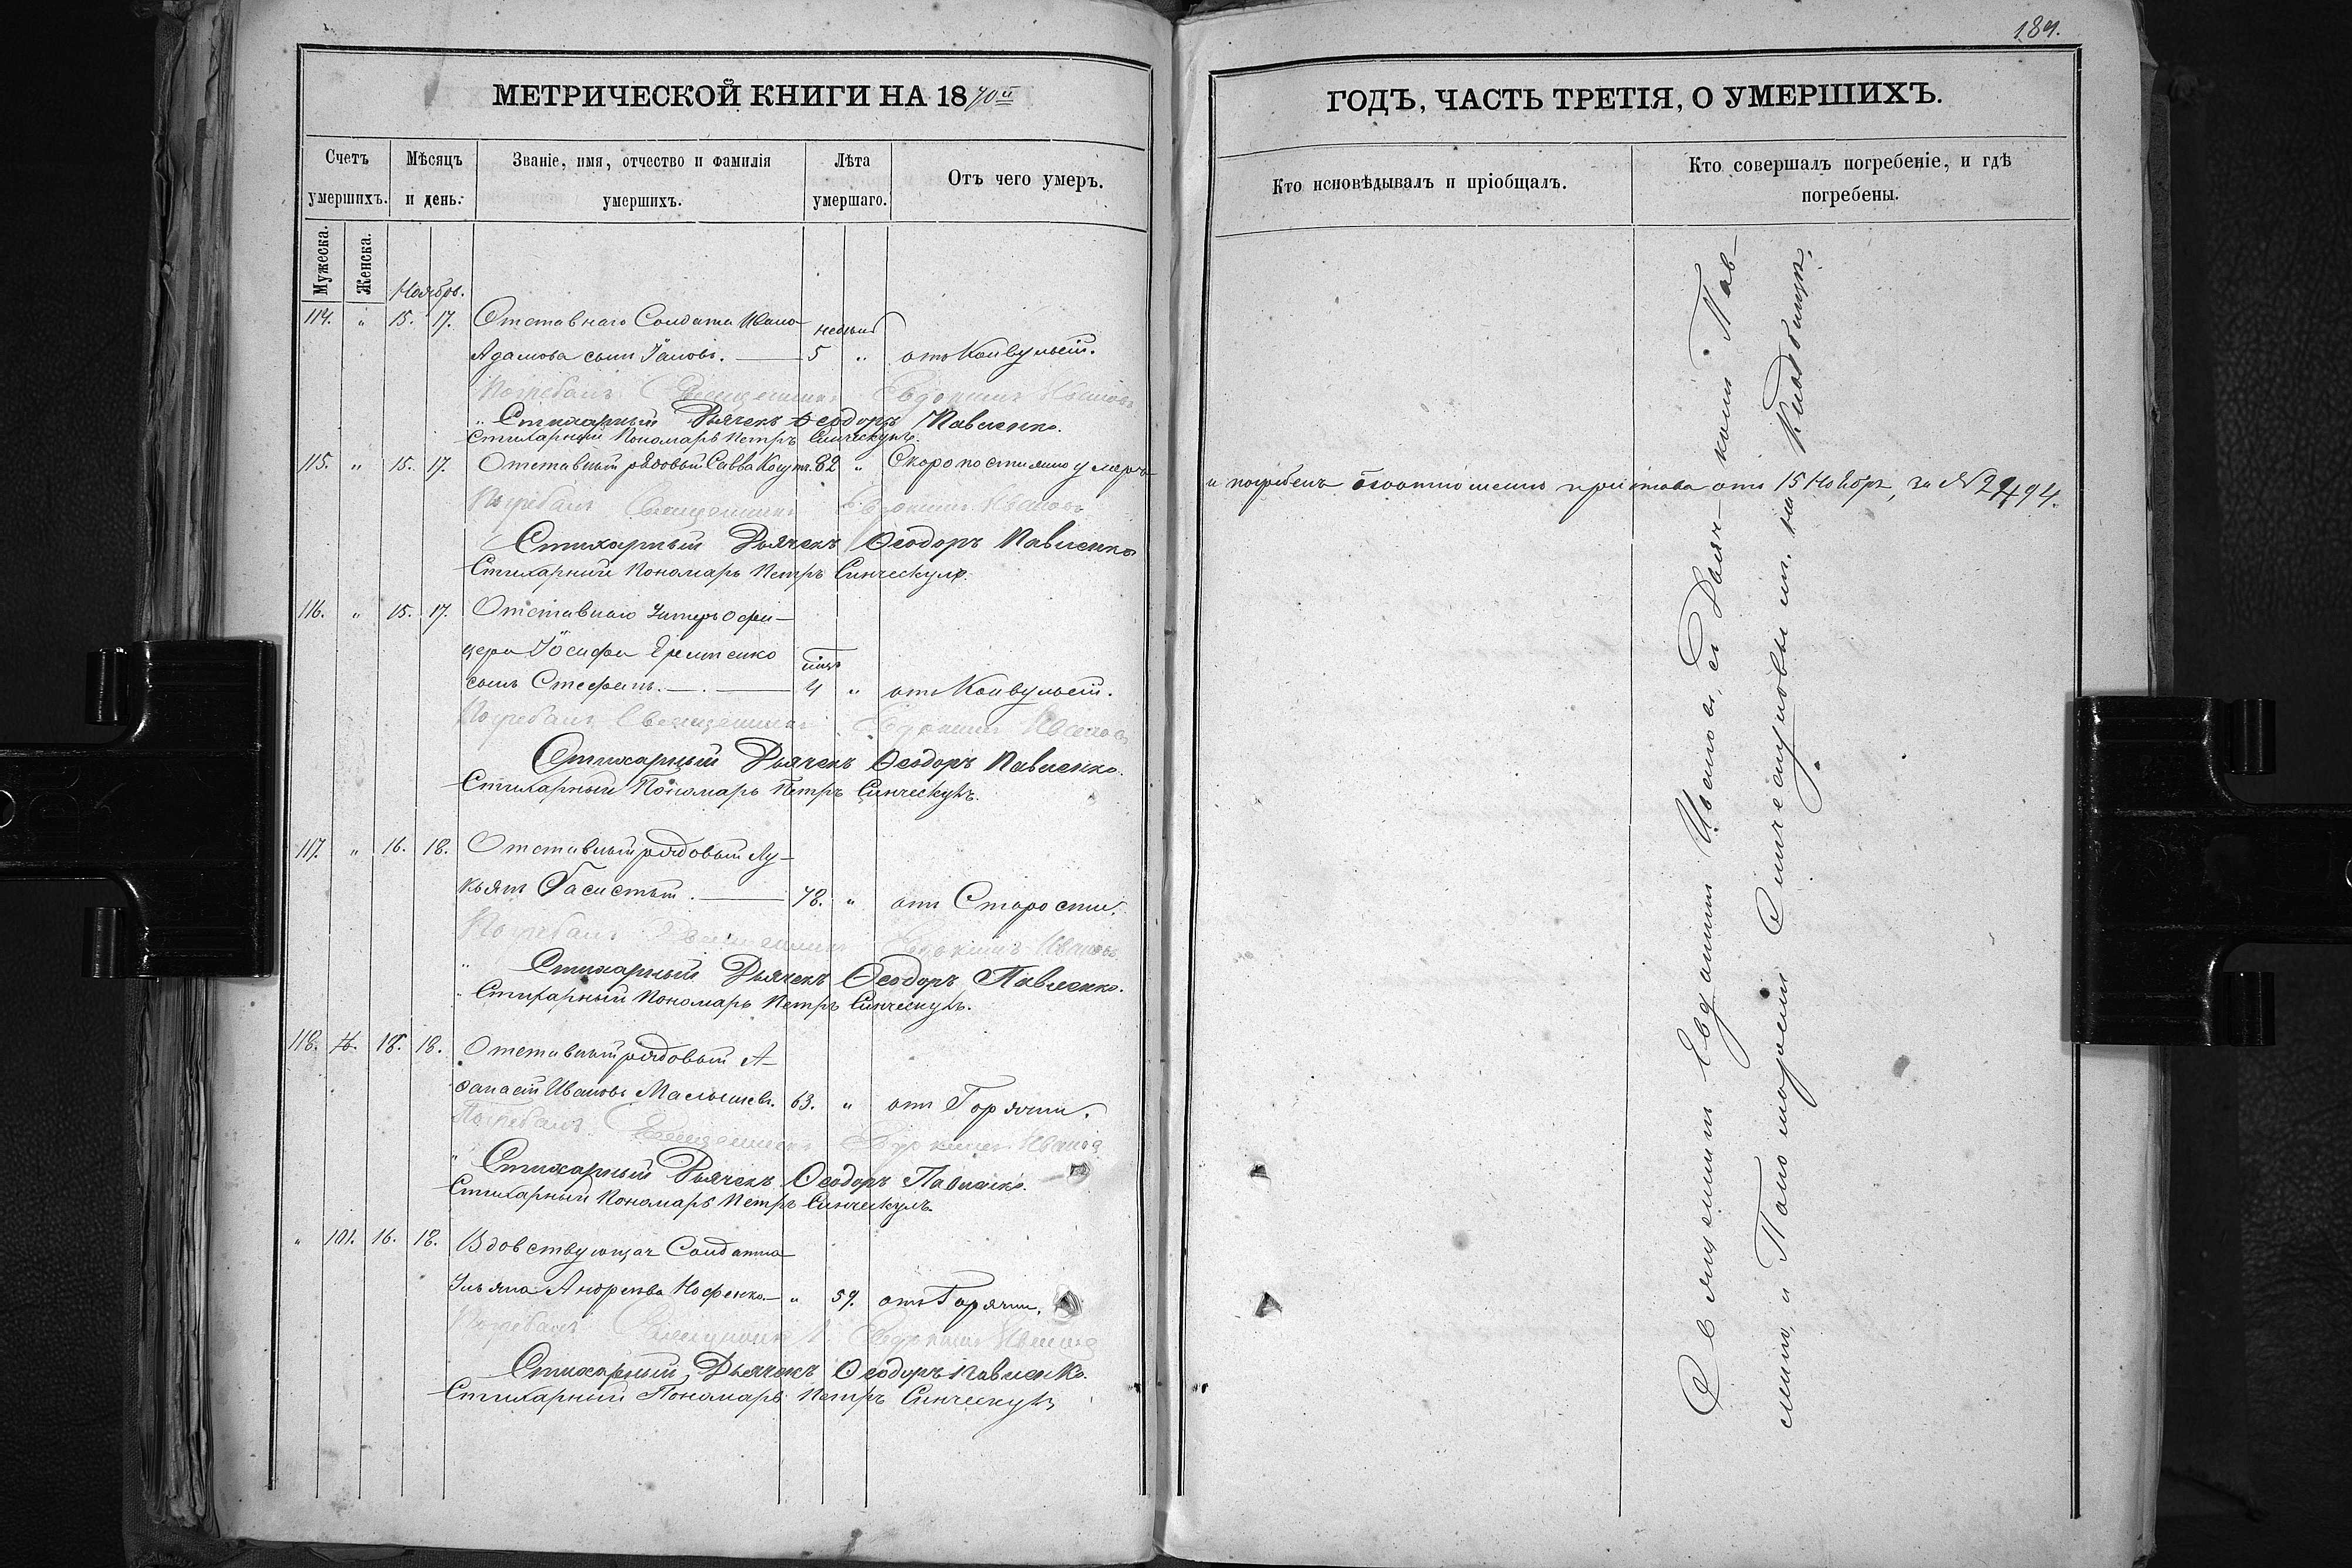 184.
МЕТРИЧЕСКОЙ КНИГИ НА 1870й
ГОДЪ, ЧАСТЬ ТРЕТІЯ, О УМЕРШИХЪ.
Счетъ умершихъ.
Мѣсяцъ и день.
Званіе, имя, отчество и фамилія умершихъ.
Лѣта умершаго.
Отъ чего умеръ.
Кто исповѣдывалъ и пріобщалъ.
Кто совершалъ погребеніе, и гдѣ погребены.
Мужеска.
Женска.
Ноябрь.
114. " 15. 17. Отставнаго Солдата Ивана
Адамова сынъ 5 " отъ Конвульсій.
Погребалъ Священникъ Евдокимъ Ивановъ
" Стихарный Дьячекъ Ѳеодоръ Павленко.
Стихарный Пономарь Петръ Синческулъ.
115. " 15. 17. Отставный рядовый Савва 82 " Скоропостижно умеръ
и погребенъ пристава отъ 15 Ноября, за № 2494.
Погребалъ Священникъ Евдокимъ Ивановъ
Стихарный Дьячекъ Ѳеодоръ Павленко
Стихарный Пономарь Петръ Синческулъ.
116. " 15. 17. Отставнаго Унтеръ Офи-
цера Іосифа Еременко
сынъ Стефанъ. 4 " отъ Конвульсій.
Погребалъ Священникъ Евдокимъ Ивановъ
Стихарный Дьячекъ Ѳеодоръ Павленко.
Стихарный Пономарь Петръ Синческулъ.
117. " 16. 18. Отставный рядовый Лу-
кьянъ Басистый. 78. " отъ Старости.
Погребалъ Священникъ Евдокимъ Ивановъ
" Стихарный Дьячекъ Ѳеодоръ Павленко.
" Стихарный Пономарь Петръ Синческулъ.
118. 18. Отставный рядовый А-
ѳанасій Ивановъ Малышевъ. 63. " отъ Горячки.
Погребалъ Священникъ Евдокимъ Ивановъ
" Стихарный Дьячекъ Ѳеодоръ Павленко.
Стихарный Пономарь Петръ Синческулъ.
" 101. 16. 18. Вдовствующая Солдатка
Ульяна Андреева " 59. отъ Горячки.
Погребалъ Священникъ Евдокимъ Ивановъ
Стихарный Дьячекъ Ѳеодоръ Павленко.
Стихарный Пономарь Петръ Синческулъ
Священникъ Евдокимъ Ивановъ, съ Дьяч-комъ Пав-
и Пономаремъ Синческуловымъ. на Кладбищѣ.